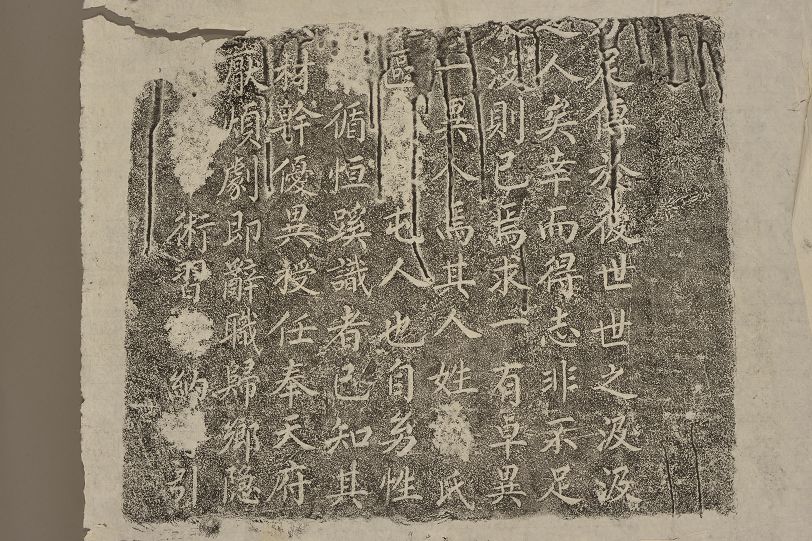 足傳於後世世之汲汲
人矣幸而得志非不足
沒則已焉求一有卓異
一異人焉其人姓氏
區屯人也自幼性
循恒蹊識者已知其
材幹優異授任奉天府
厭煩劇即辭職歸鄉隐
術習納引